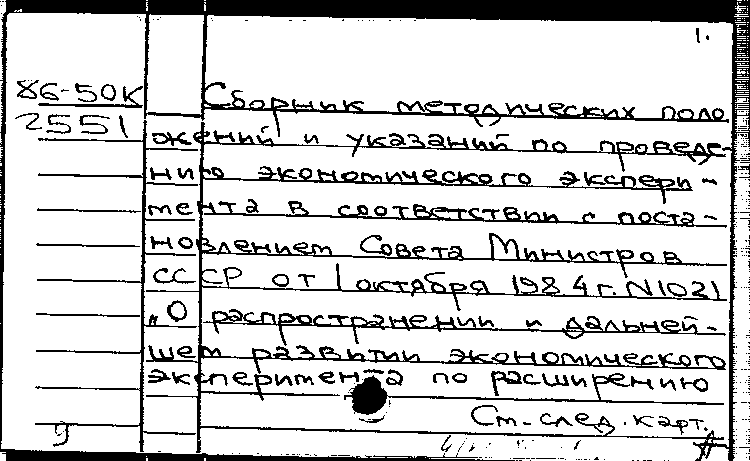 1.
86-50К Сборник методических поло
2551 жений и указаний по проведе-
нию экономического экспери-
мента в соответствии с поста-
новлением Совета Министров
СССР от 1 октября 1984 г. N1031
„О распространении и дальней-
шем развитии экономического
эксперимента по расширению
См. след. карт.
9